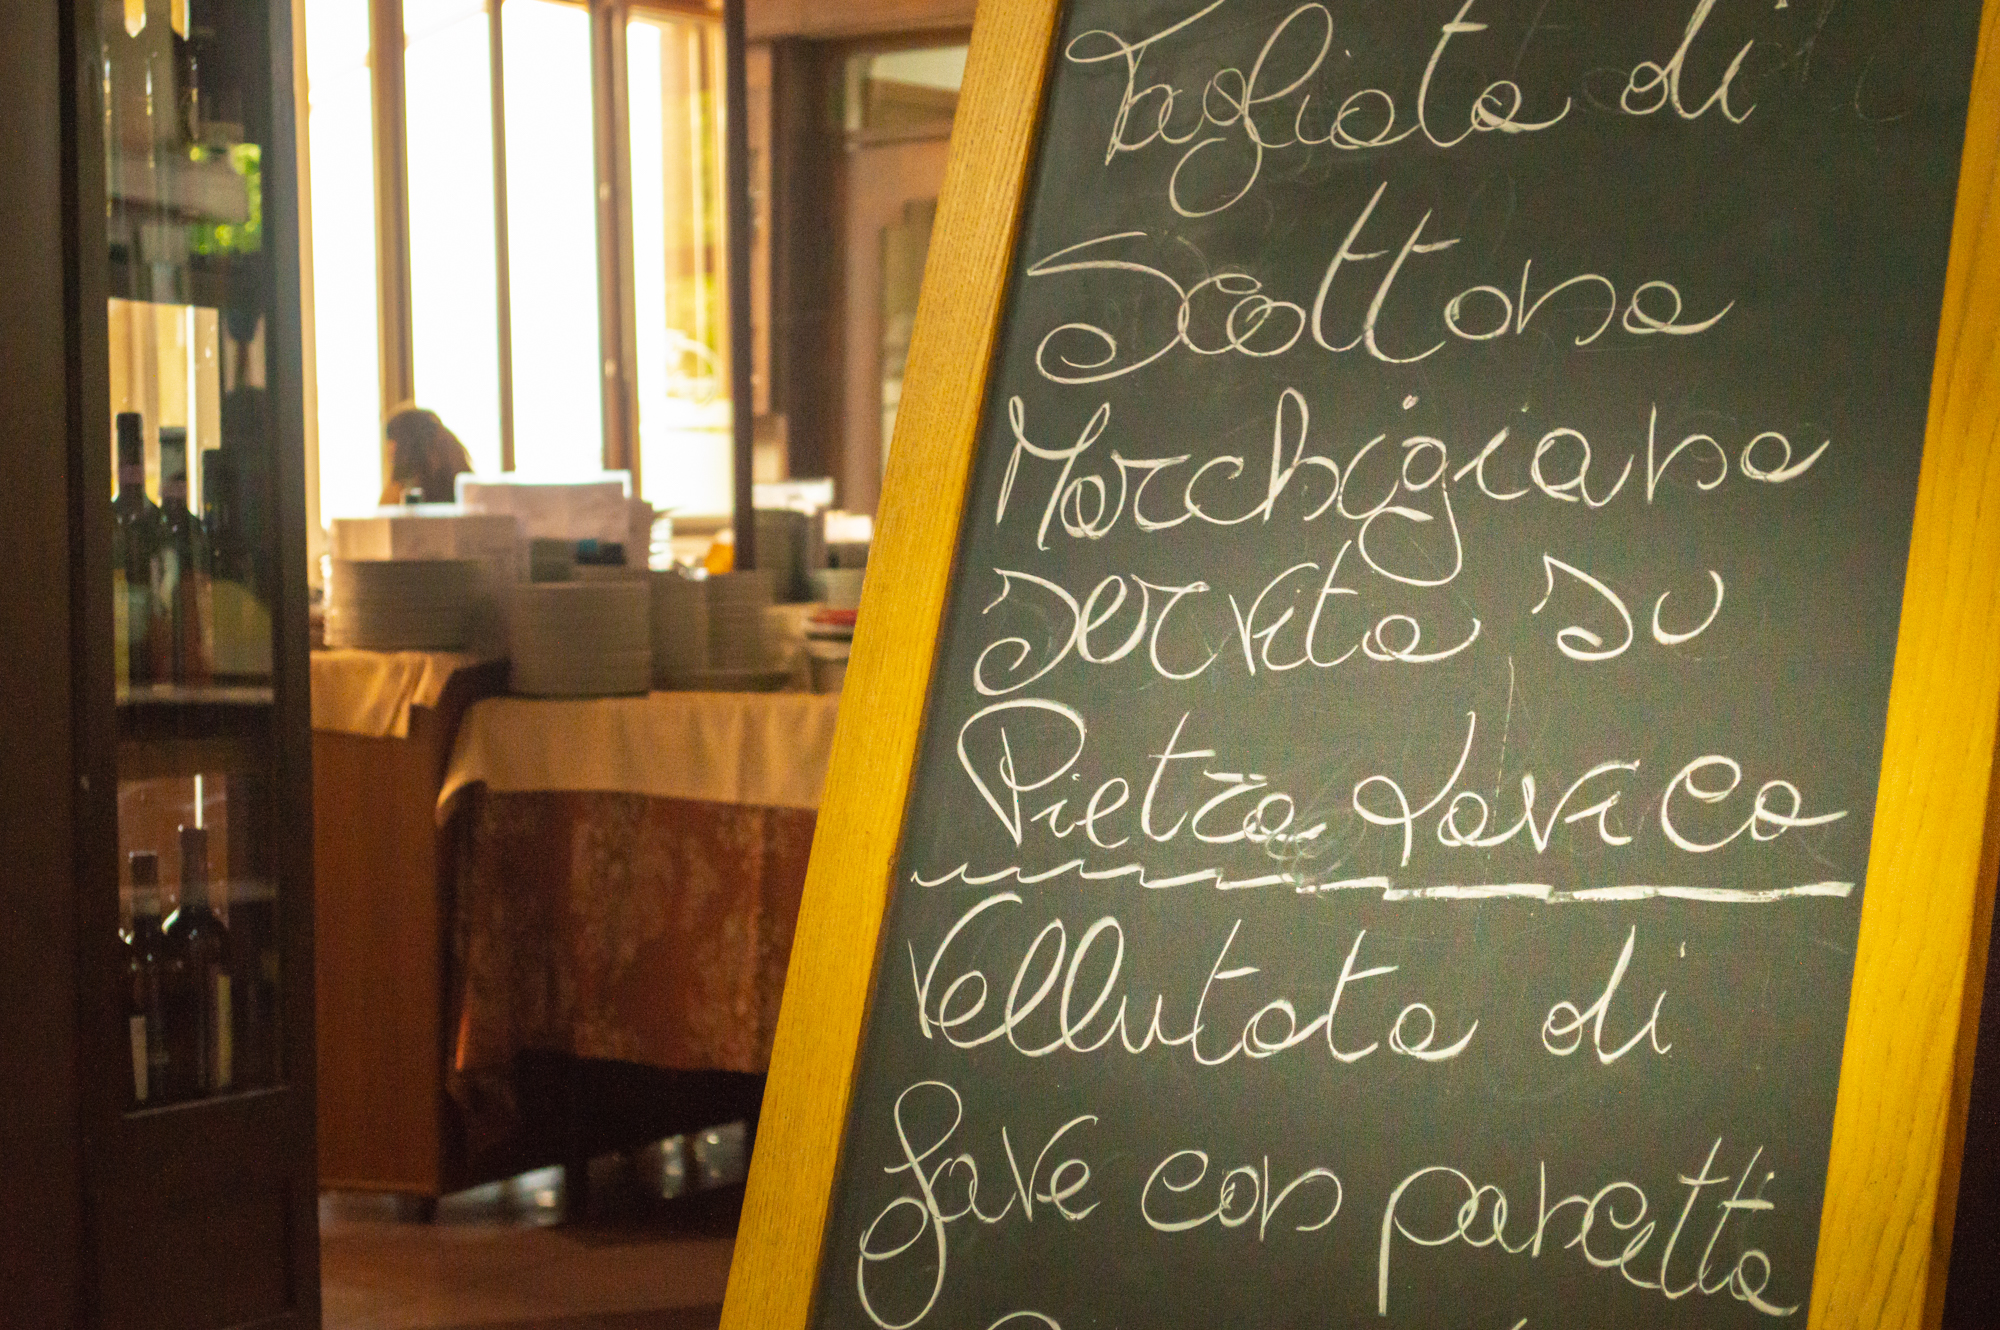 Tagliata di
Scottona
Marchigiana
servita su
Pietra Lavica
Vellutata di
fave con pancetta